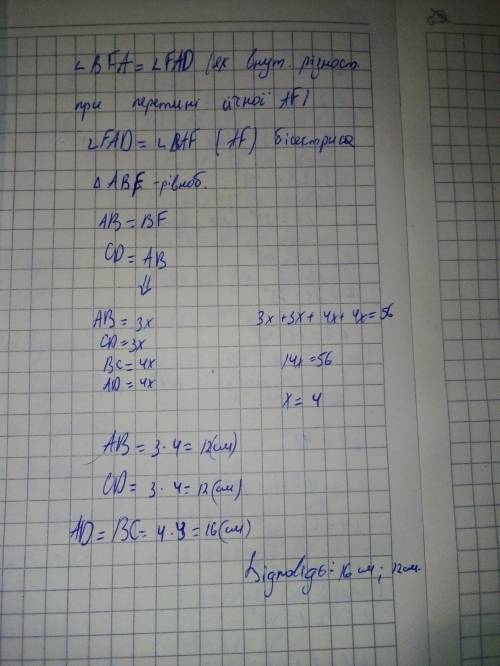 ∠BFA = ∠FAD (як внут. різност
при перетині січної AF)
∠FAD = ∠BAF (AF) бісектриса
△ABF - рівноб.
AB = BF
CD = AB
⇓
AB = 3x
3x + 3x + 4x + 4x = 56
CD = 3x
BC = 4x
14x = 56
AD = 4x
x = 4
AB = 3 · 4 = 12(см)
CD = 3 · 4 = 12(см)
AD = BC = 4 · 4 = 16(см)
Відповідь: 16 см; 12 см.